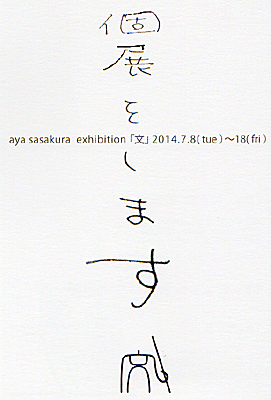 個展をします
aya sasakura exhibition「文」2014.7.8(tue)～18(fri)